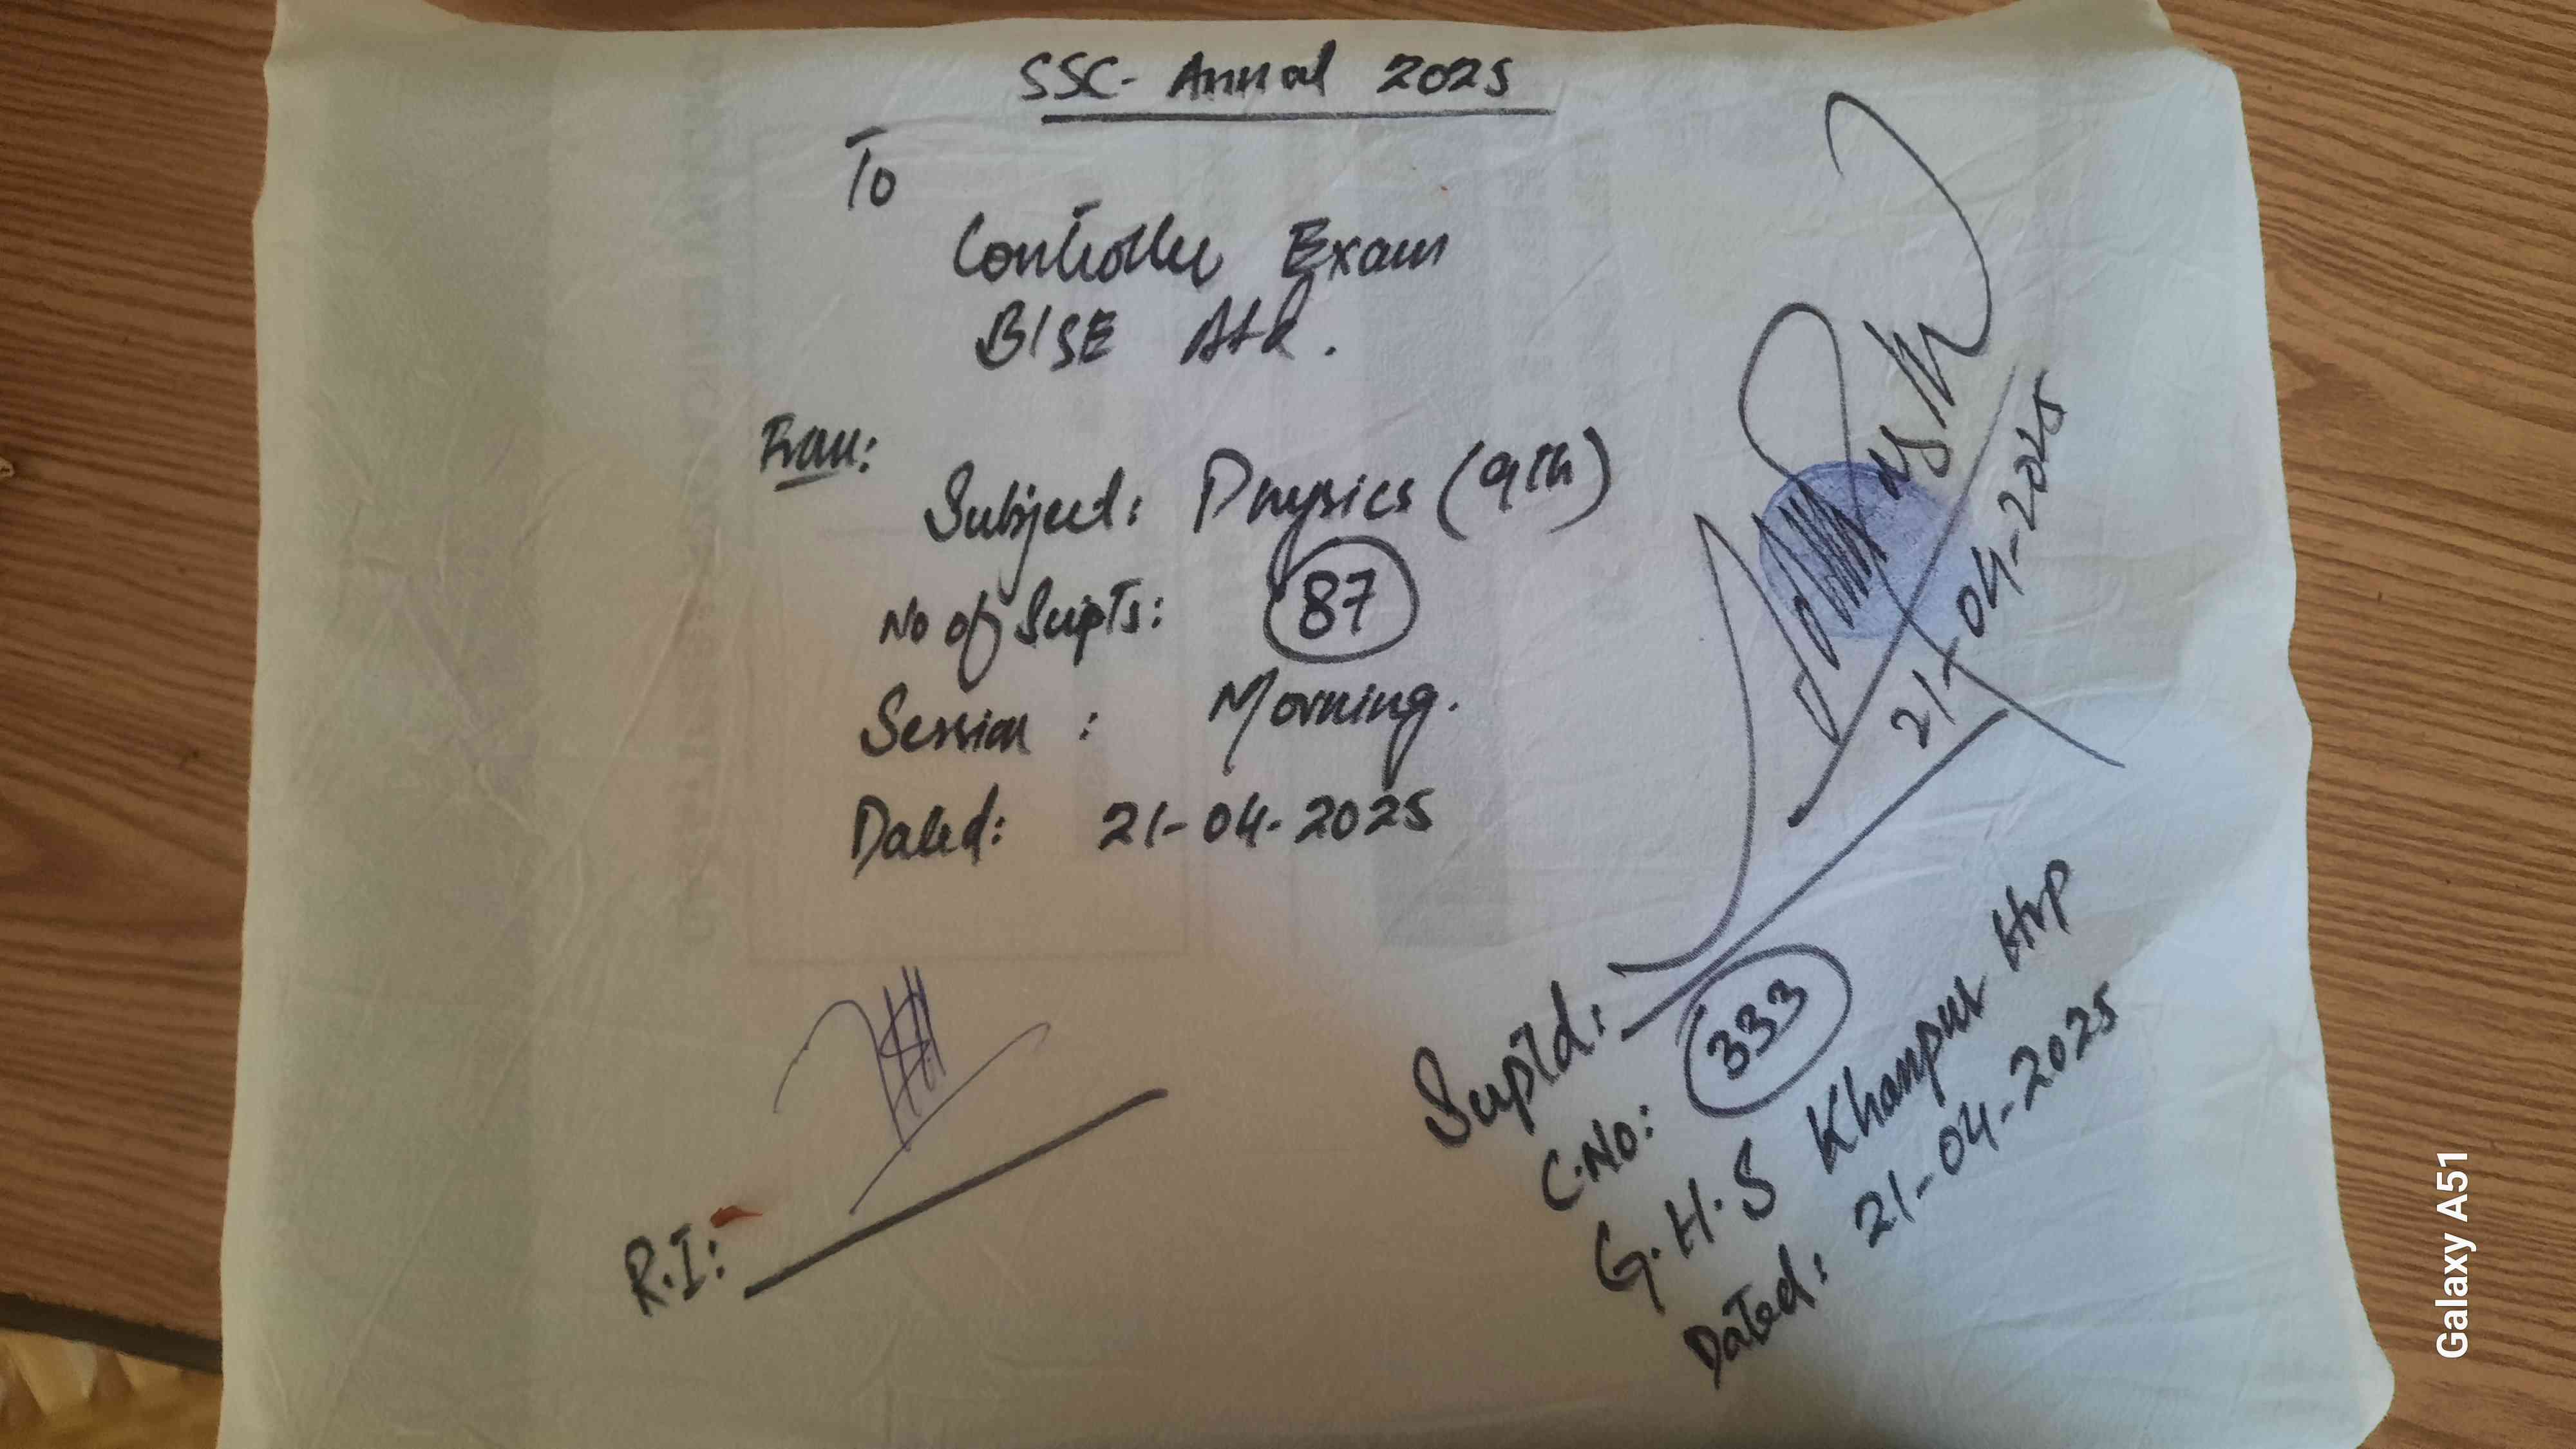 SSC- Annual 2025
To
Controller Exam
BISE Atd.
From:
Subject: Physics (9th)
No of Scripts: 87
Session : Morning.
Dated: 21-04-2025
21-04-2025
R.I:
Suptd:
C.No: 333
G.H.S Khanpur Hrp
Dated: 21-04-2025
Galaxy A51